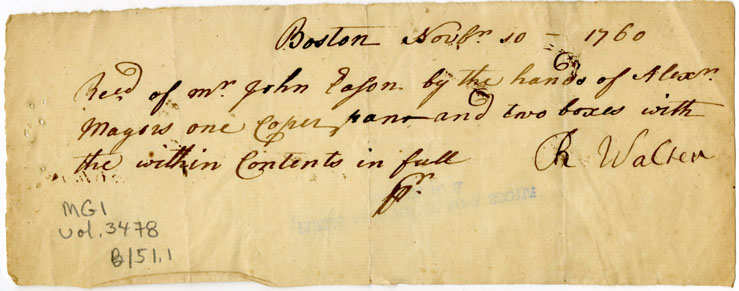 Boston Novbr. 10 - 1760
Recd of mr John Eason by the hands of Alexr.
Magors one Coper pan and two boxes with
the within Contents in full R Walter
pr.
MG1
vol. 3478
B/51.1